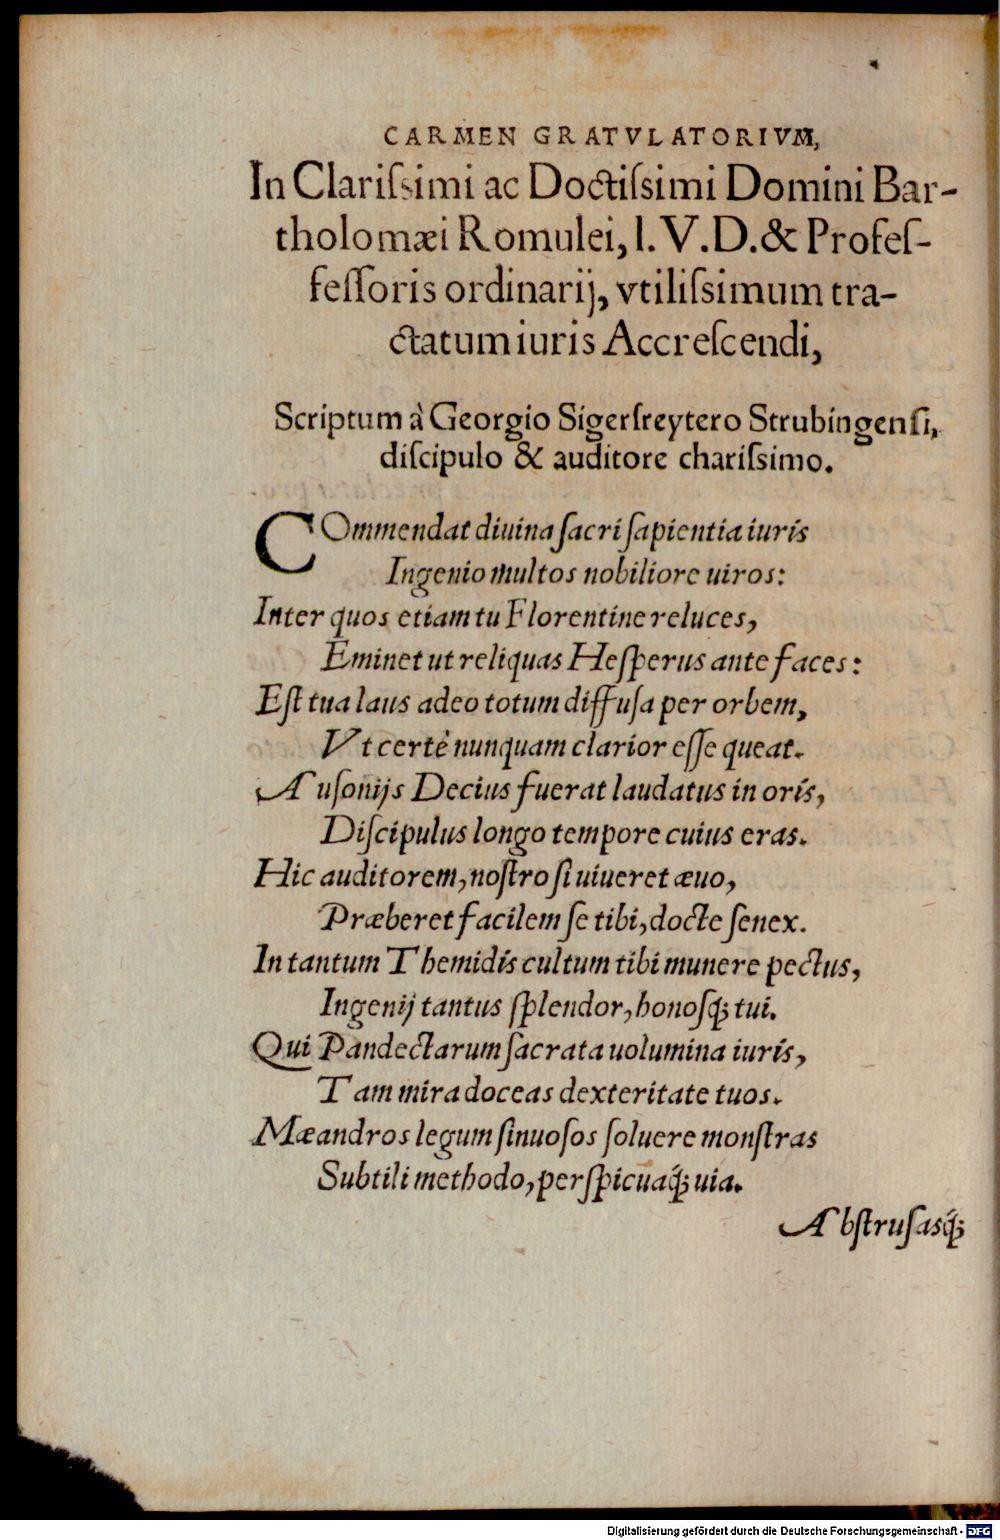 CARMEN GRATVLATORIVM,
In Clariſsimi ac Doctiſsimi Domini Bar-
tholomæi Romulei, I. V. D. & Profeſ-
feſſoris ordinarij, vtiliſsimum tra-
ctatum iuris Accreſcendi,
Scriptum à Georgio Sigerſreytero Strubingenſi,
diſcipulo & auditore chariſsimo.
COmmendat diuina ſacri ſapientia iuris
Ingenio multos nobiliore uiros:
Inter quos etiam tu Florentine reluces,
Eminet ut reliquas Heſperus ante faces:
Eſt tua laus adeo totum diffuſa per orbem,
Vt certè nunquam clarior eſſe queat.
Auſonijs Decius fuerat laudatus in oris,
Diſcipulus longo tempore cuius eras.
Hic auditorem, noſtro ſi uiueret æuo,
Præberet facilem ſe tibi, docte ſenex.
In tantum Themidis cultum tibi munere pectus,
Ingenij tantus ſplendor, honoſq́; tui.
Qui Pandectarum ſacrata uolumina iuris,
Tam mira doceas dexteritate tuos.
Mæandros legum ſinuoſos ſoluere monſtras
Subtili methodo, perſpicuaq́; uia.
Abſtruſasq́;
Digitalisierung gefördert durch die Deutsche Forschungsgemeinschaft - DFG